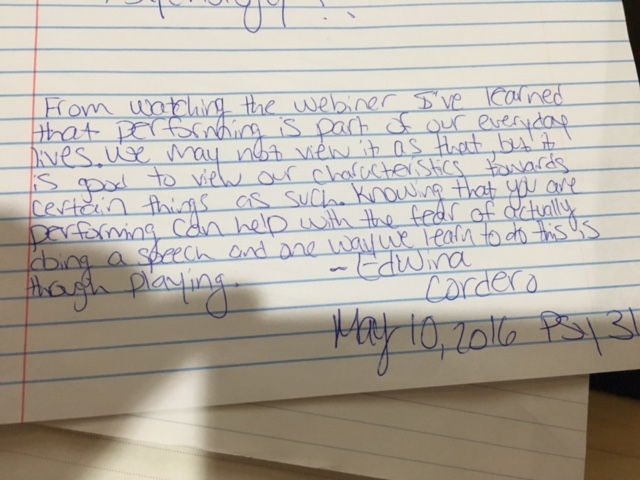 From watching the webiner I've learned
that performing is part of our everyday
lives. We may not view it as that but it
is good to view our characteristics towards
certain things as such. Knowing that you are
performing can help with the fear of actually
doing a speech and one way we learn to do this is
through playing.
- Edwina
Cordero
May 10, 2016 Psy 31